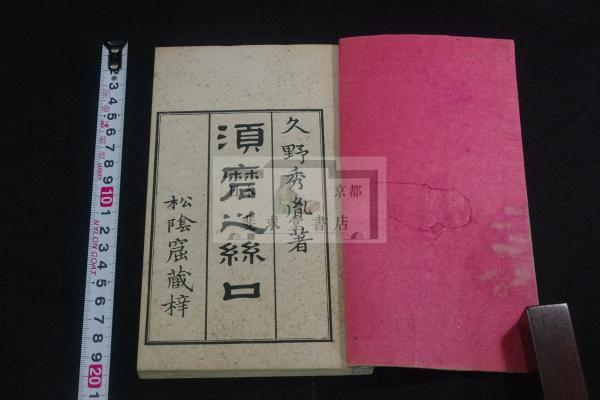 久野秀胤著
須磨之絲口
松陰窟蔵梓
京都
東
書店
2 3 4 5 6 7 8 9 10 1 2 3 4 5 6 7 8 9 20
NYLON COAT